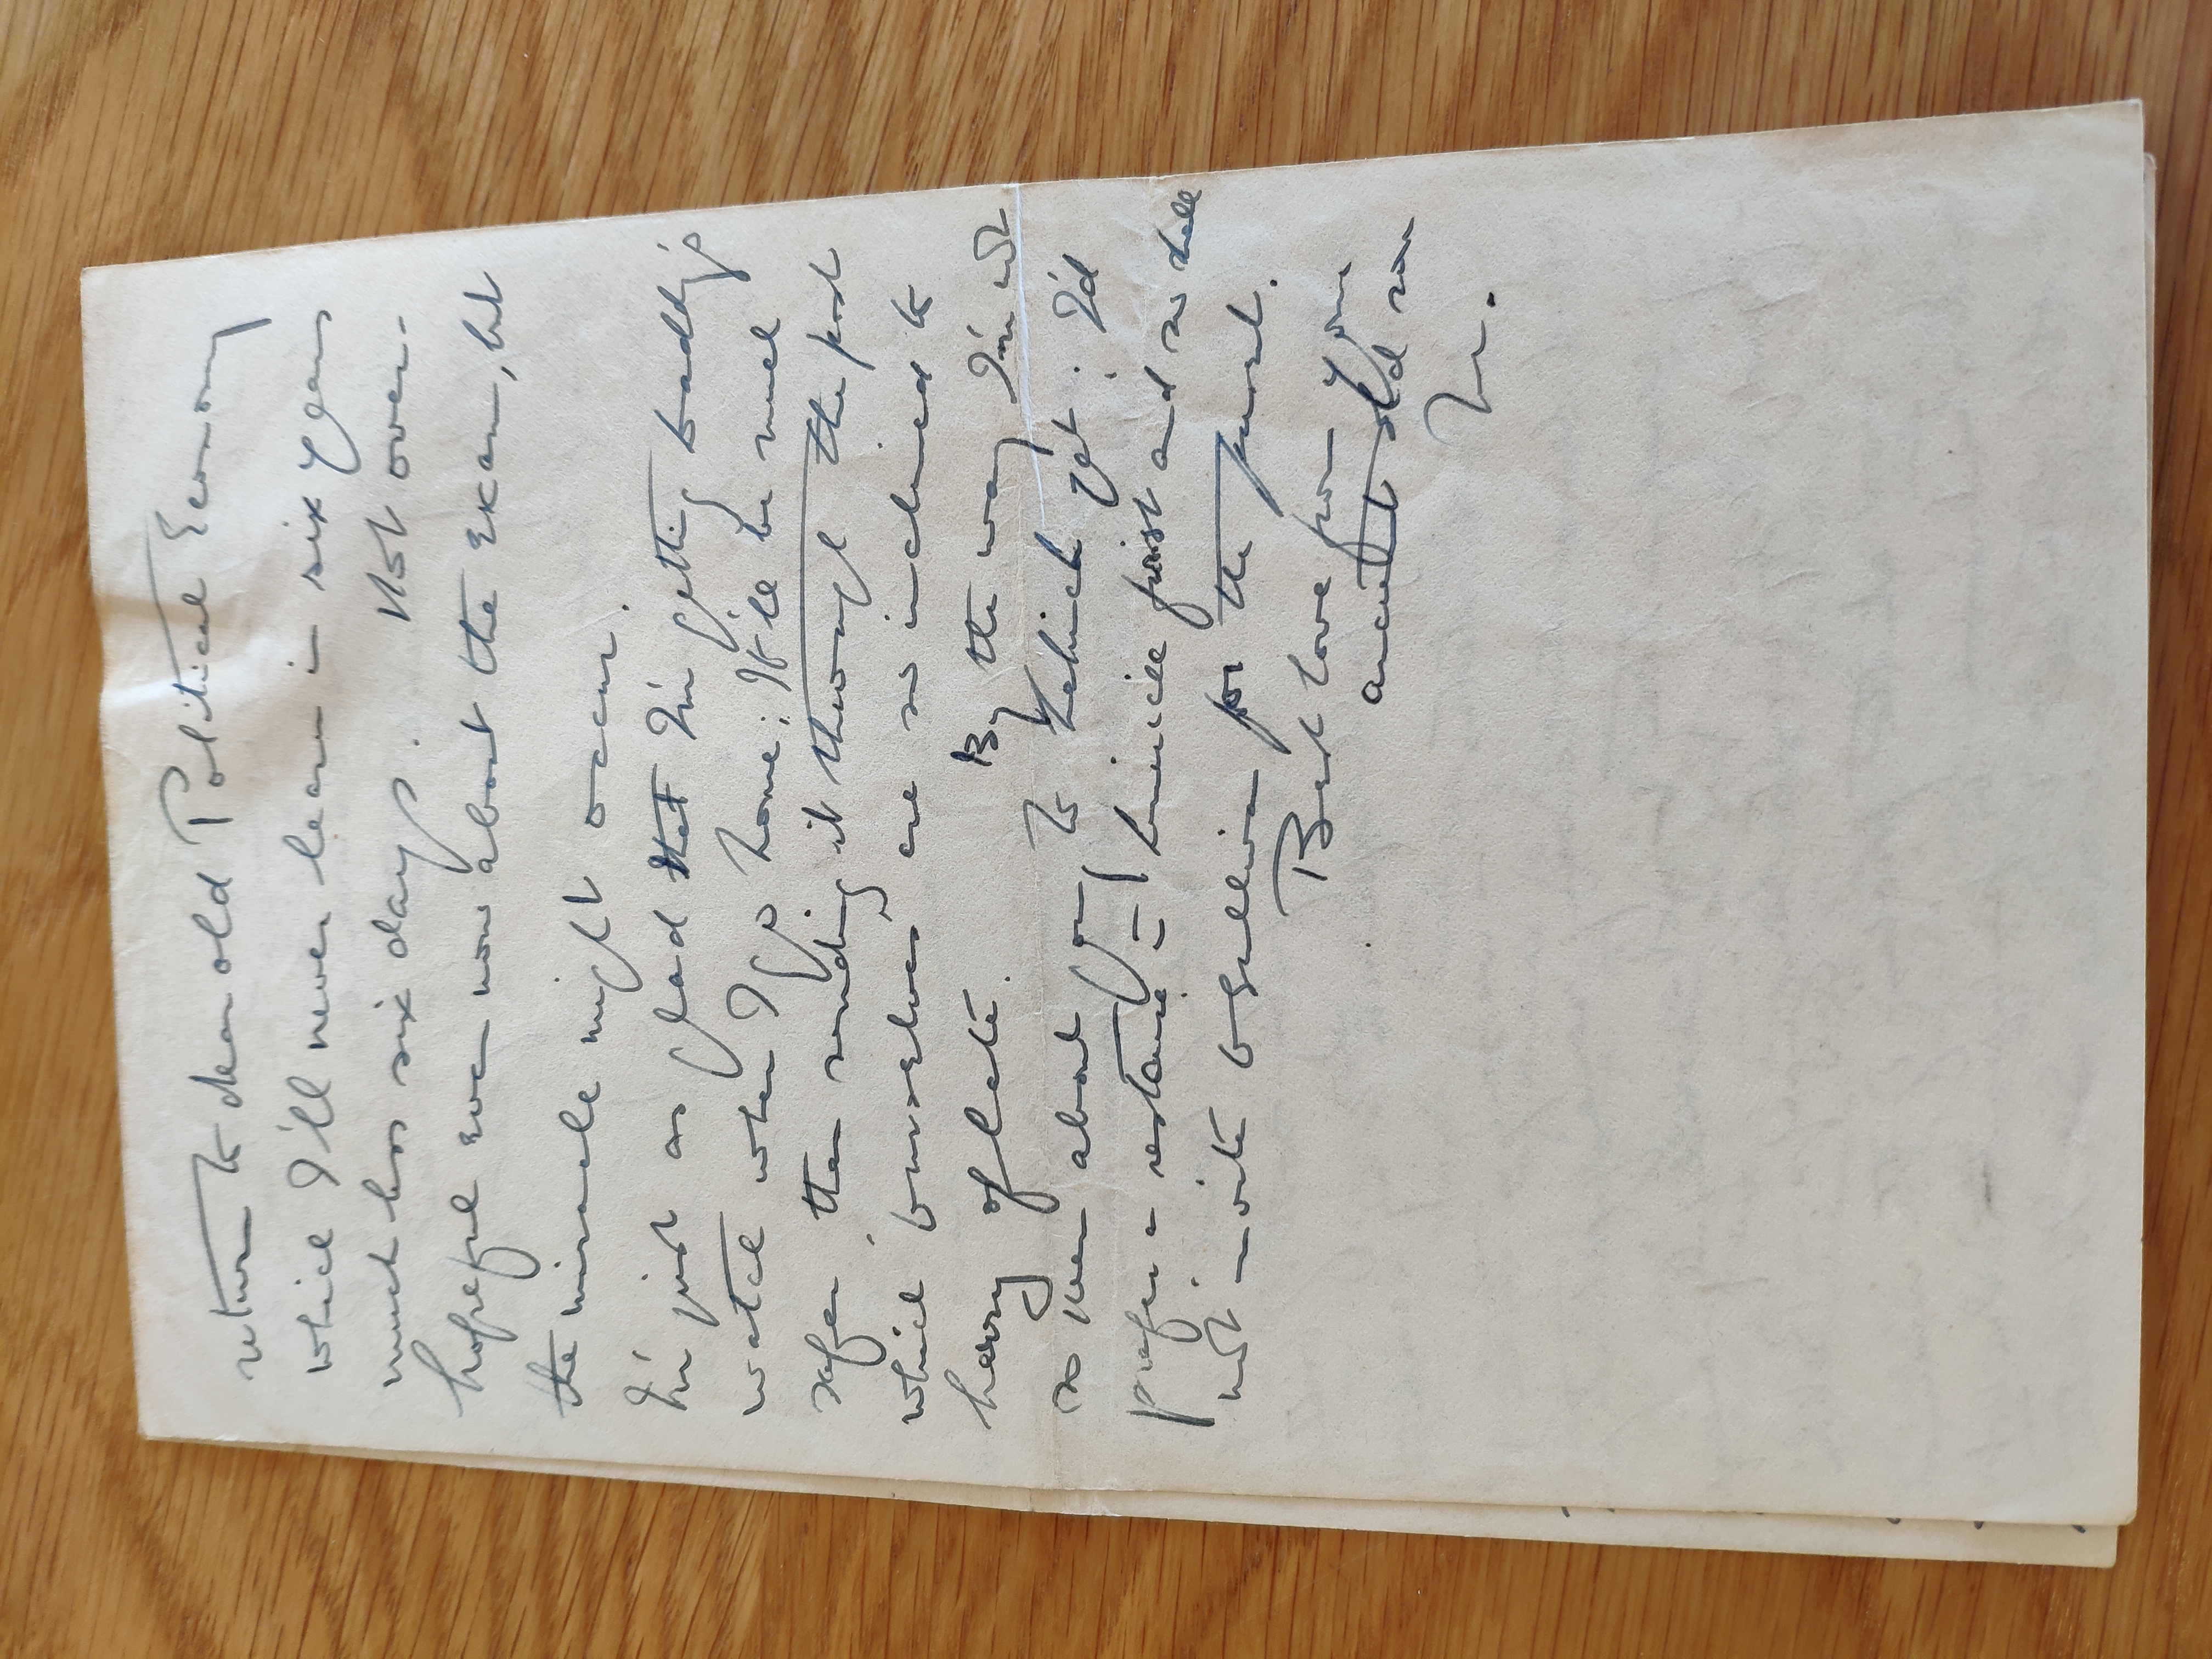 return to dear old Political Economy
which I'll never learn in six years
much less six days. Not over-
hopeful even now about the exam, but
the miracle might occur.
I'm just as glad that I'm getting
watch when I go home: It'll be much
safer than sending it through the post
which burglars are so inclined to
heavy of late. By the way I'm not
so keen about going to yet. I'd
prefer a first and so shall
not write for the present.
Best love from your
ancient old son